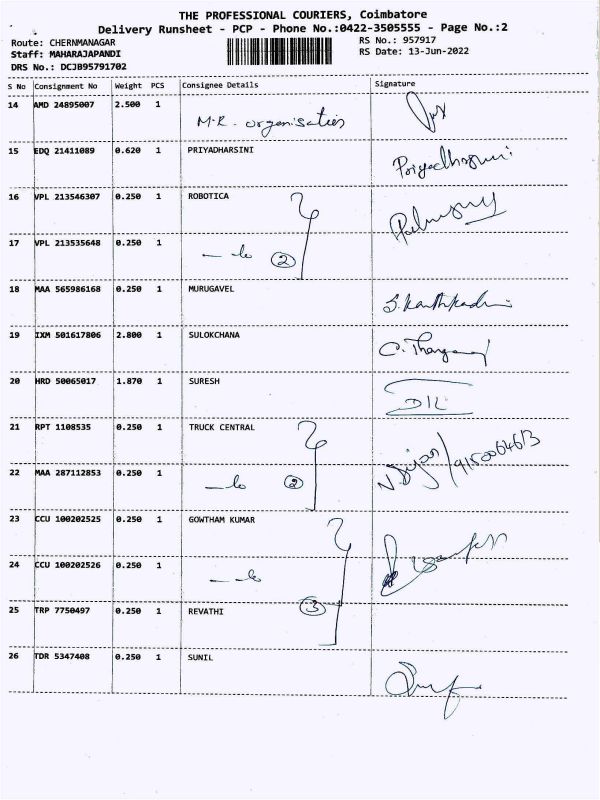 THE PROFESSIONAL COURIERS, Coimbatore
Delivery Runsheet - PCP - Phone No.:0422-3505555 - Page No.:2
Route: CHERNMANAGAR RS No.: 957917
Staff: MAHARAJAPANDI RS Date: 13-Jun-2022
DRS No.: DCJB95791702
S No Consignment No Weight PCS Consignee Details Signature
14 AMD 24895007 2.500 1 M.R. organisation
15 EDQ 21411089 0.620 1 PRIYADHARSINI Priyadharsini
16 VPL 213546307 0.250 1 ROBOTICA
17 VPL 213535648 0.250 1 2
18 MAA 565986168 0.250 1 MURUGAVEL
19 IXM 501617806 2.800 1 SULOKCHANA
20 HRD 50065017 1.870 1 SURESH
21 RPT 1108535 0.250 1 TRUCK CENTRAL
22 MAA 287112853 0.250 1 2
23 CCU 100202525 0.250 1 GOWTHAM KUMAR
24 CCU 100202526 0.250 1
25 TRP 7750497 0.250 1 REVATHI 3
26 TDR 5347408 0.250 1 SUNIL